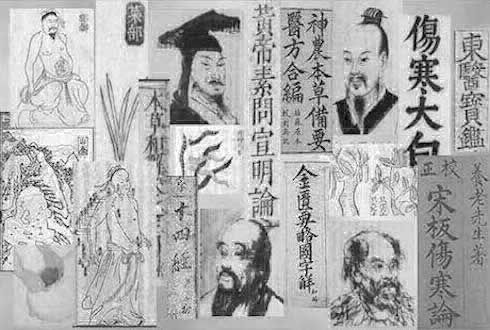 東醫寶鑑
傷寒大白
神農本草備要
醫方合編
黃帝素問宣明論
養老先生著
校正
宋板傷寒論
金匱要略國字解
十四經
本草和